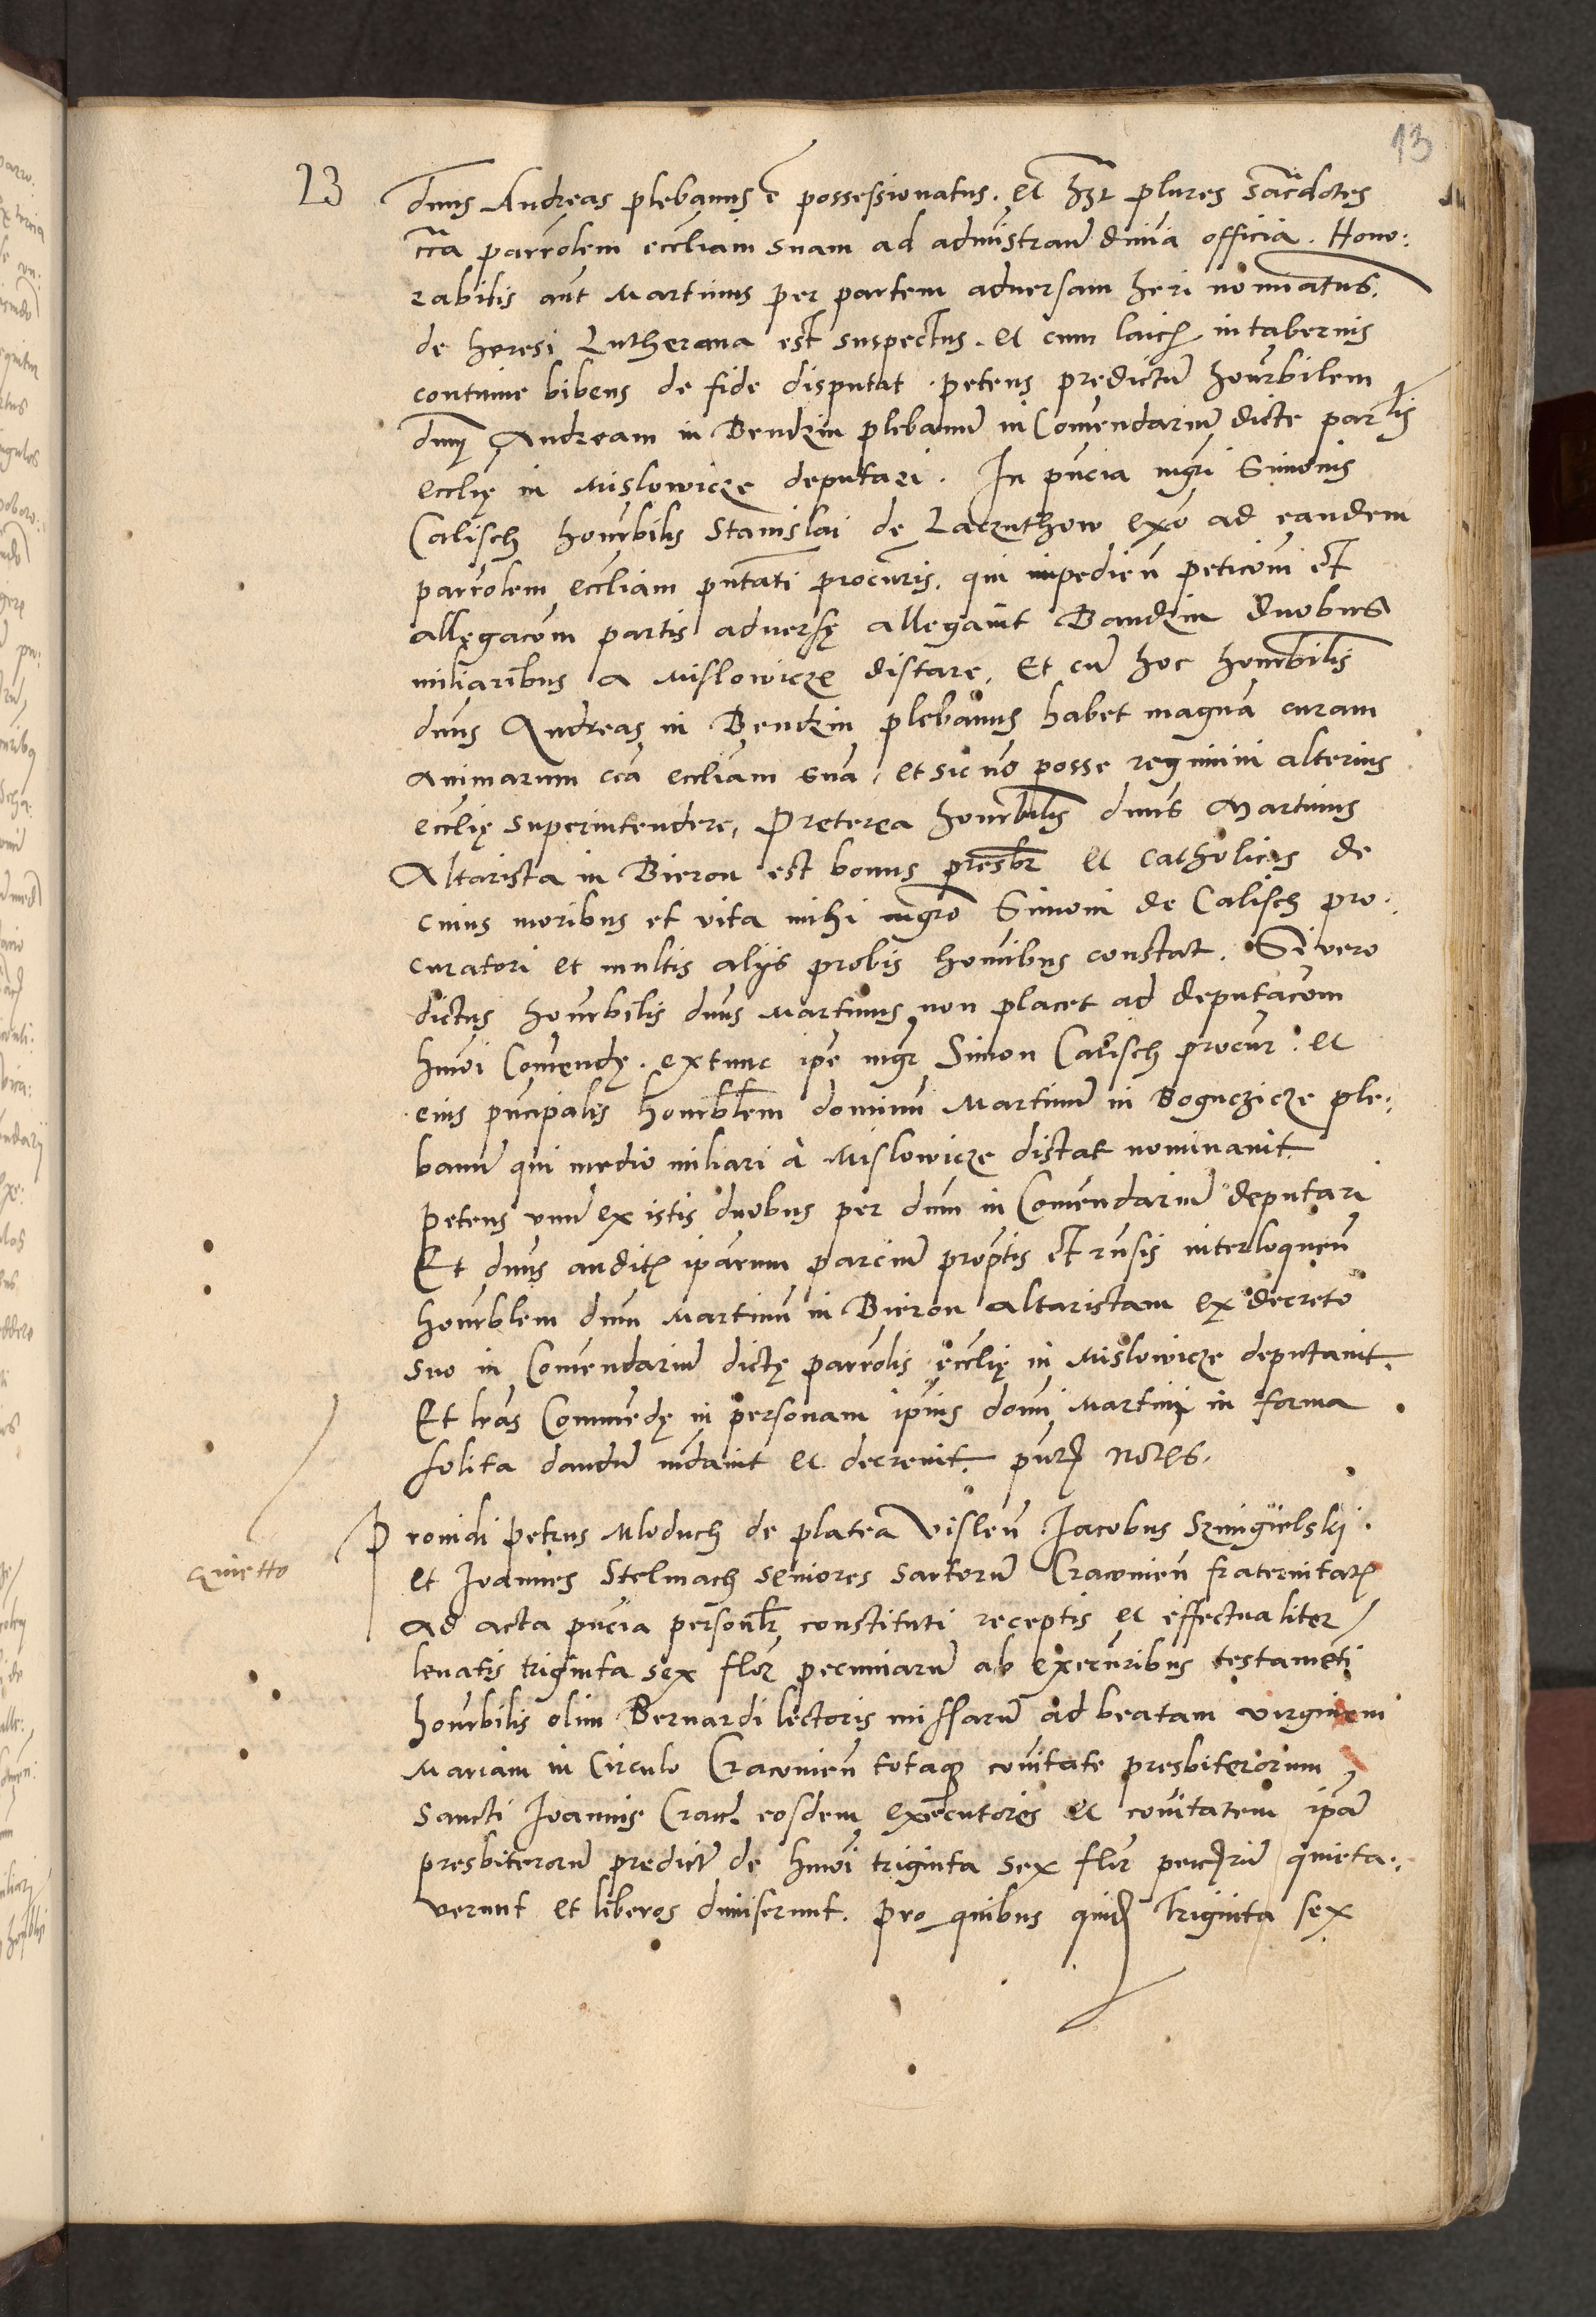 13
23
dnus Andreas plebanus e possessionatus. et hz plures sacdotes
cca parrolem eccliam suam ad admistran divia officia. Hono:
rabilis aut Martinus per partem adversam heri nominatus.
de heresi Lutherana est suspectus. et cum laicis in tabernis
continue bibens de fide disputat. petens predictu honrbilem
dnm Andream in Bendzin plebanu in Comendariu dicte parrlis
ecclię in Mislowicze deputari. In pncia mgri Simonis
Calisch honrbilis Stanislai de Laczuthow exo ad eandem
parrolem eccliam pntati procuris. qui impedien peticoni et
allegacom partis adversę allegavit Bandzin duobus
miliaribus a Mislowicze distare. Et cu hoc honrbilis
dnus Andreas in Bendzin plebanus habet magna curam
animarum cca eccliam sua. et sic no posse regimini alterius
ecclię superintendere. Preterea honrbilis dnus Martinus
Altarista in Bieron est bonus presbr et catholicus de
cuius moribus et vita mihi mgro Simoni de Calisch pro:
curatori et multis alijs probis hominibus constat. Si vero
dictus honrbilis dnus Martinus non placet ad deputacom
hmoi Comendę. extunc ipe mgr Simon Calisch procur. et
eius pncipalis honrblem dominu Martinu in Boguczicze ple:
banu qui medio miliari a Mislowicze distat nominavit
petens unu ex istis duobus per dnm in Comendariu deputari
Et dnus auditis iparum parciu propotis et rnsis interloquen
honrblem dnm Martinu in Bieron altaristam ex decreto
suo in Comendariu dictę parrolis ecclię in Mislowicze deputavit.
Et lras Commedę in personam ipius domi Martini in forma
solita dandu mdavit et decrevit. pntibus
quietto
Providi Petrus Mloduch de platea Vislen. Jacobus Szmigielski.
et Joannes Stelmach seniores sartoru Cracovien fraternitatis
ad acta pncia personlr constituti receptis et effectualiter
levatis triginta sex flor pecuniaru ab execuribus testameti
honrbilis olim Bernardi lectoris missaru ad beatam virginem
Mariam in Circulo Cracovien totaque covitate presbiterorum
Sancti Joannis Crac. eosdem executores et covitatem ipa
presbiteroru predict de hmoi triginta sex flor pecuniaru quieta:
verunt et liberos dimiserunt. Pro quibus quid Triginta sex